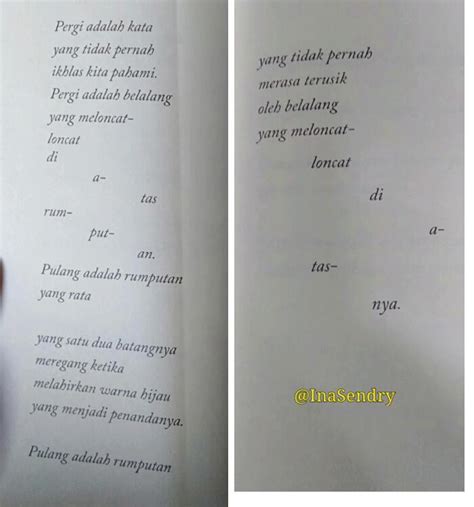 Pergi adalah kata
yang tidak pernah
ikhlas kita pahami.
Pergi adalah belalang
yang meloncat–
loncat
di
a–
tas
rum–
put–
an.
Pulang adalah rumputan
yang rata
yang satu dua batangnya
meregang ketika
melahirkan warna hijau
yang menjadi penandanya.
Pulang adalah rumputan
yang tidak pernah
merasa terusik
oleh belalang
yang meloncat–
loncat
di
a–
tas–
nya.
@InaSendry